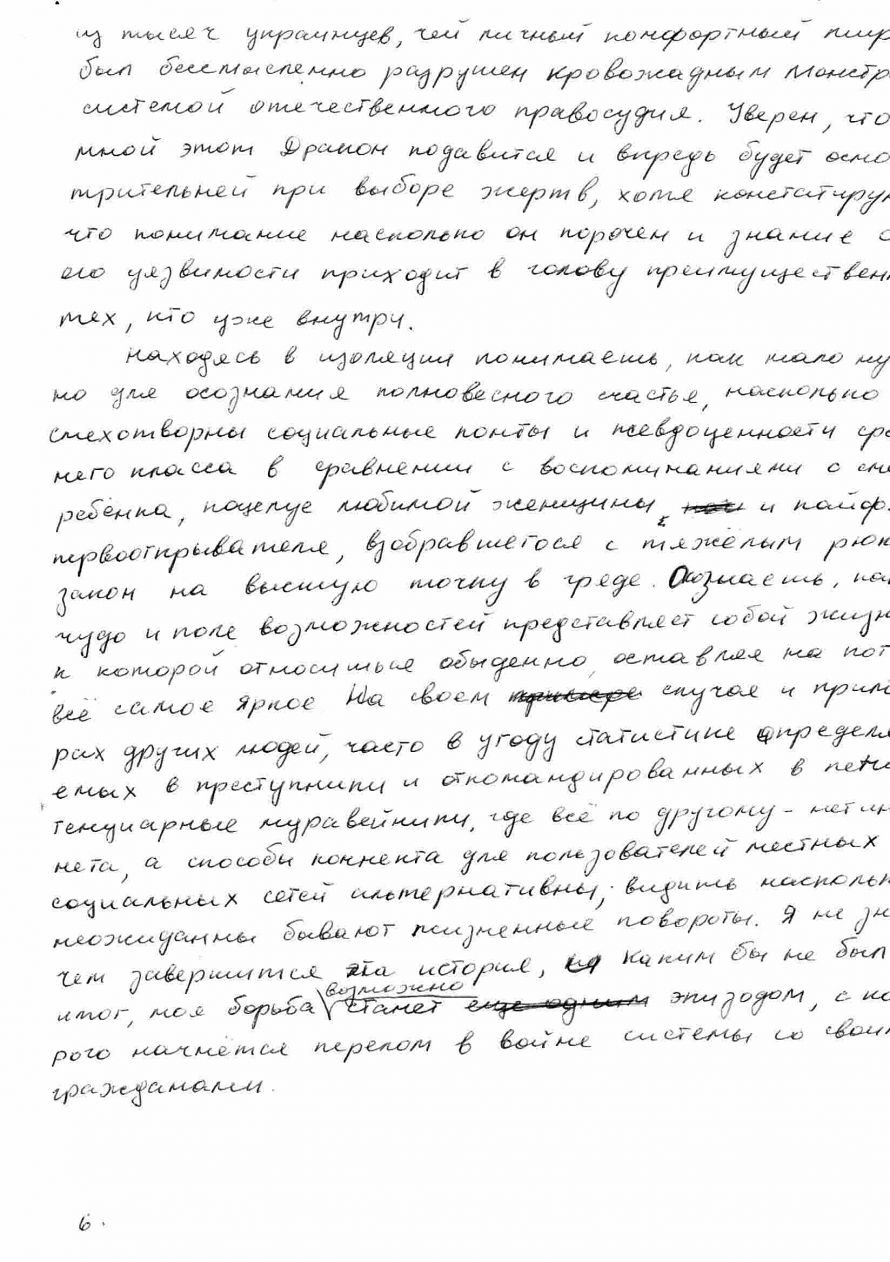 из тысяч украинцев, чей личный комфортный мир
был бессмысленно разрушен кровожадным монстр
системой отечественного правосудия. Уверен, что
мной этот Дракон подавится и впредь будет осмо
трительней при выборе жертв, хотя констатирую
что понимание насколько он порочен и знание о
его уязвимости приходит в голову преимуществен
тех, кто уже внутри.
Находясь в изоляции понимаешь, как мало ну
но для осознания полновесного счастья, насколько
смехотворны социальные понты и псевдоценности сре
него класса в сравнении с воспоминаниями о сме
ребёнка, поцелуе любимой женщины и кайф
первооткрывателя, взобравшегося с тяжёлым рюк
заком на высшую точку в гряде. Осознаешь, как
чудо и поле возможностей представляет собой жизн
к которой относишься обыденно, оставляя на пот
всё самое яркое На своем примере случае и прим
рах других людей, часто в угоду статистике определя
емых в преступники и откомандированных в пени
тенциарные муравейники, где всё по другому - нет ин
нета, а способы коннекта для пользователей местных
социальных сетей альтернативны; видишь насколько
неожиданны бывают жизненные повороты. Я не зн
чем завершится эта история, но каким бы не был
итог, моя борьба возможно станет еще одним эпизодом, с ко
рого начнётся перелом в войне системы со свои
гражданами.
6.